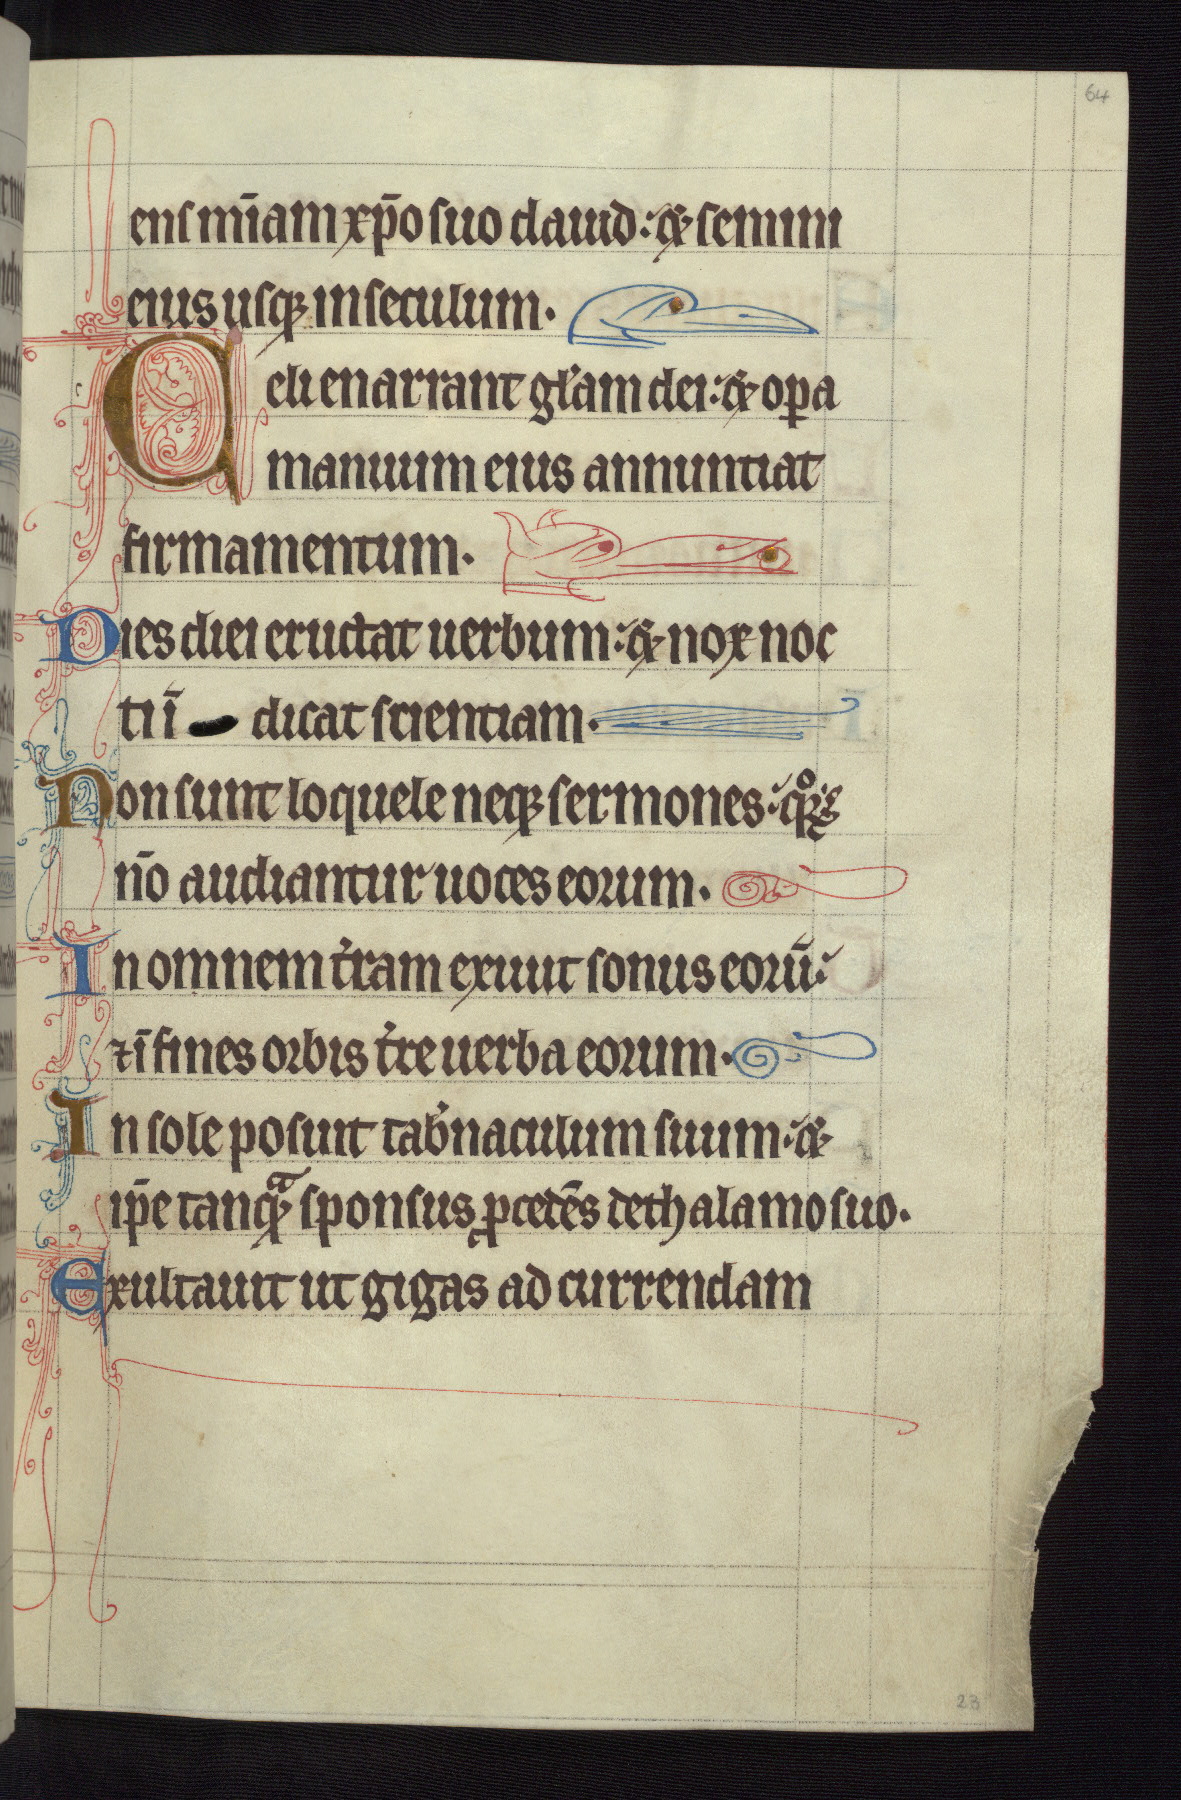 64
ens mīam xp̄o suo dauid: & semini
eius usq; in seculum.
Celi enarrant gl̄am dei: & oꝑa
manuum eius annuntiat
firmamentum.
Dies diei eructat uerbum: & nox noc
ti ī dicat scientiam.
Non sunt loquele neq; sermones: qͦꝝ
nō audiantur uoces eorum.
In omnem t̄ram exiuit sonus eorū:
⁊ ī fines orbis t̄re uerba eorum.
In sole posuit tab̄naculum suum: &
ip̄e tanqᵃ sponsus ꝓcedēs de thalamo suo.
Exultauit ut gigas ad currendam
23